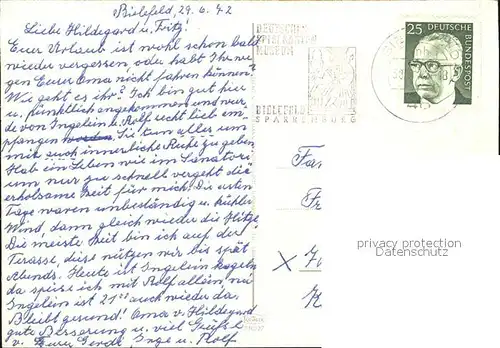 Bielefeld, 29.6.72
Liebe Hildegard u. Fritz!
Eurer Urlaub ist wohl schon bald
wieder vergessen oder habt Ihr we-
gen Eurer Oma nicht fahren können?
Wie geht es ihr? Ich bin gut hier
u. pünktlich angekommen und wur-
de von Ingelein u. Rolf recht lieb em-
pfangen worden. Sie tun alles um
mir auch innerliche Ruhe zu geben
Hab ein Leben wie im Sanatori
um nur zu schnell vergeht die
erholsame Zeit für mich. Die ersten
Tage waren unbeständig u. kühler
Wind, dann gleich wieder die Hitze.
Die meiste Zeit bin ich auf der
Terasse, diese nützen wir bis spät
Abends. Heute ist Ingelein kegeln
da speise ich mit Rolf allein,
Ingelein ist 21 auch wieder da.
Bleibt gesund! Oma u. Hildegard
gute Besserung u. viel Grüße
v. Eurer Gerdi Inge u. Rolf.
DEUTSCHES
SPIELKARTEN
MUSEUM
BIELEFELD
SPARRENBURG
25
DEUTSCHE
BUNDESPOST
Fa
F
X
privacy protection
Datenschutz